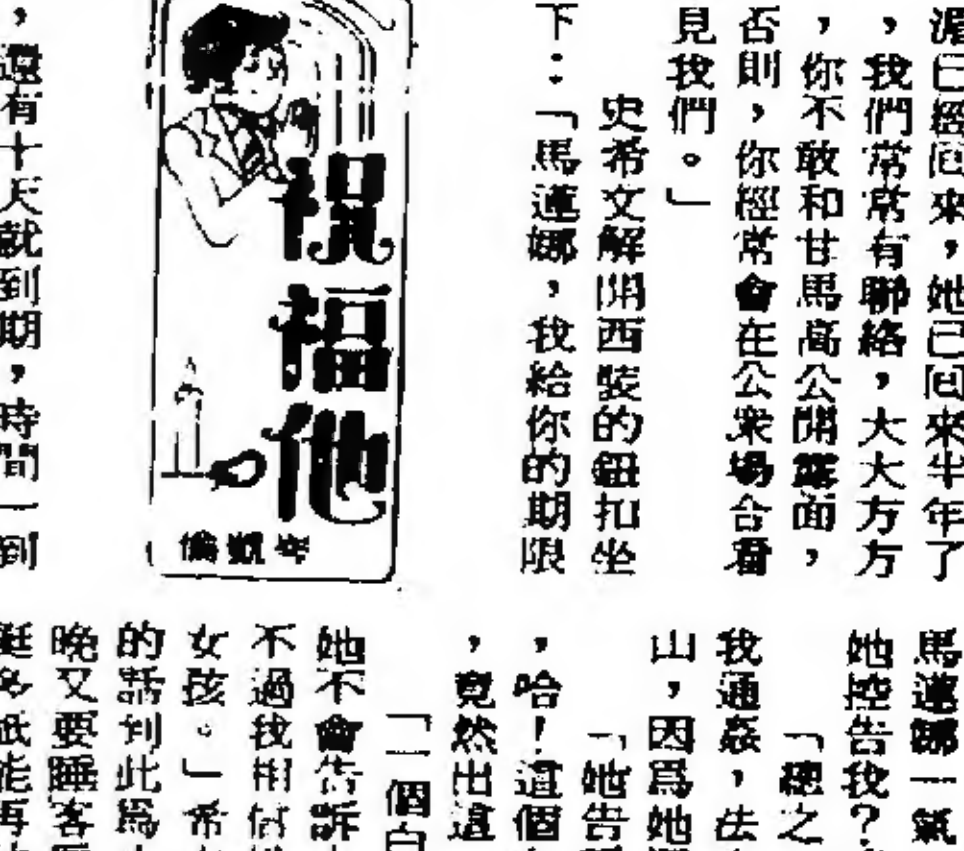 已經回來，她已回來半年了
，我們常常有聯絡，大大方方
，你不敢和甘馬高公開露面，
否則，你經常會在公衆場合看
見我們。」
史希文解開西裝的鈕扣坐
下：「馬蓮娜，我給你的期限
祝福他
岑凱倫
，還有十天就到期，時間一到
馬蓮娜一氣
她控告我？
「總之
我通姦，法
山，因爲她
「她告
，哈！這個
，竟然出這
「一個白
她不會告訴
不過我相信
女孩。」希
的話到此爲
晚又要睡客
能再